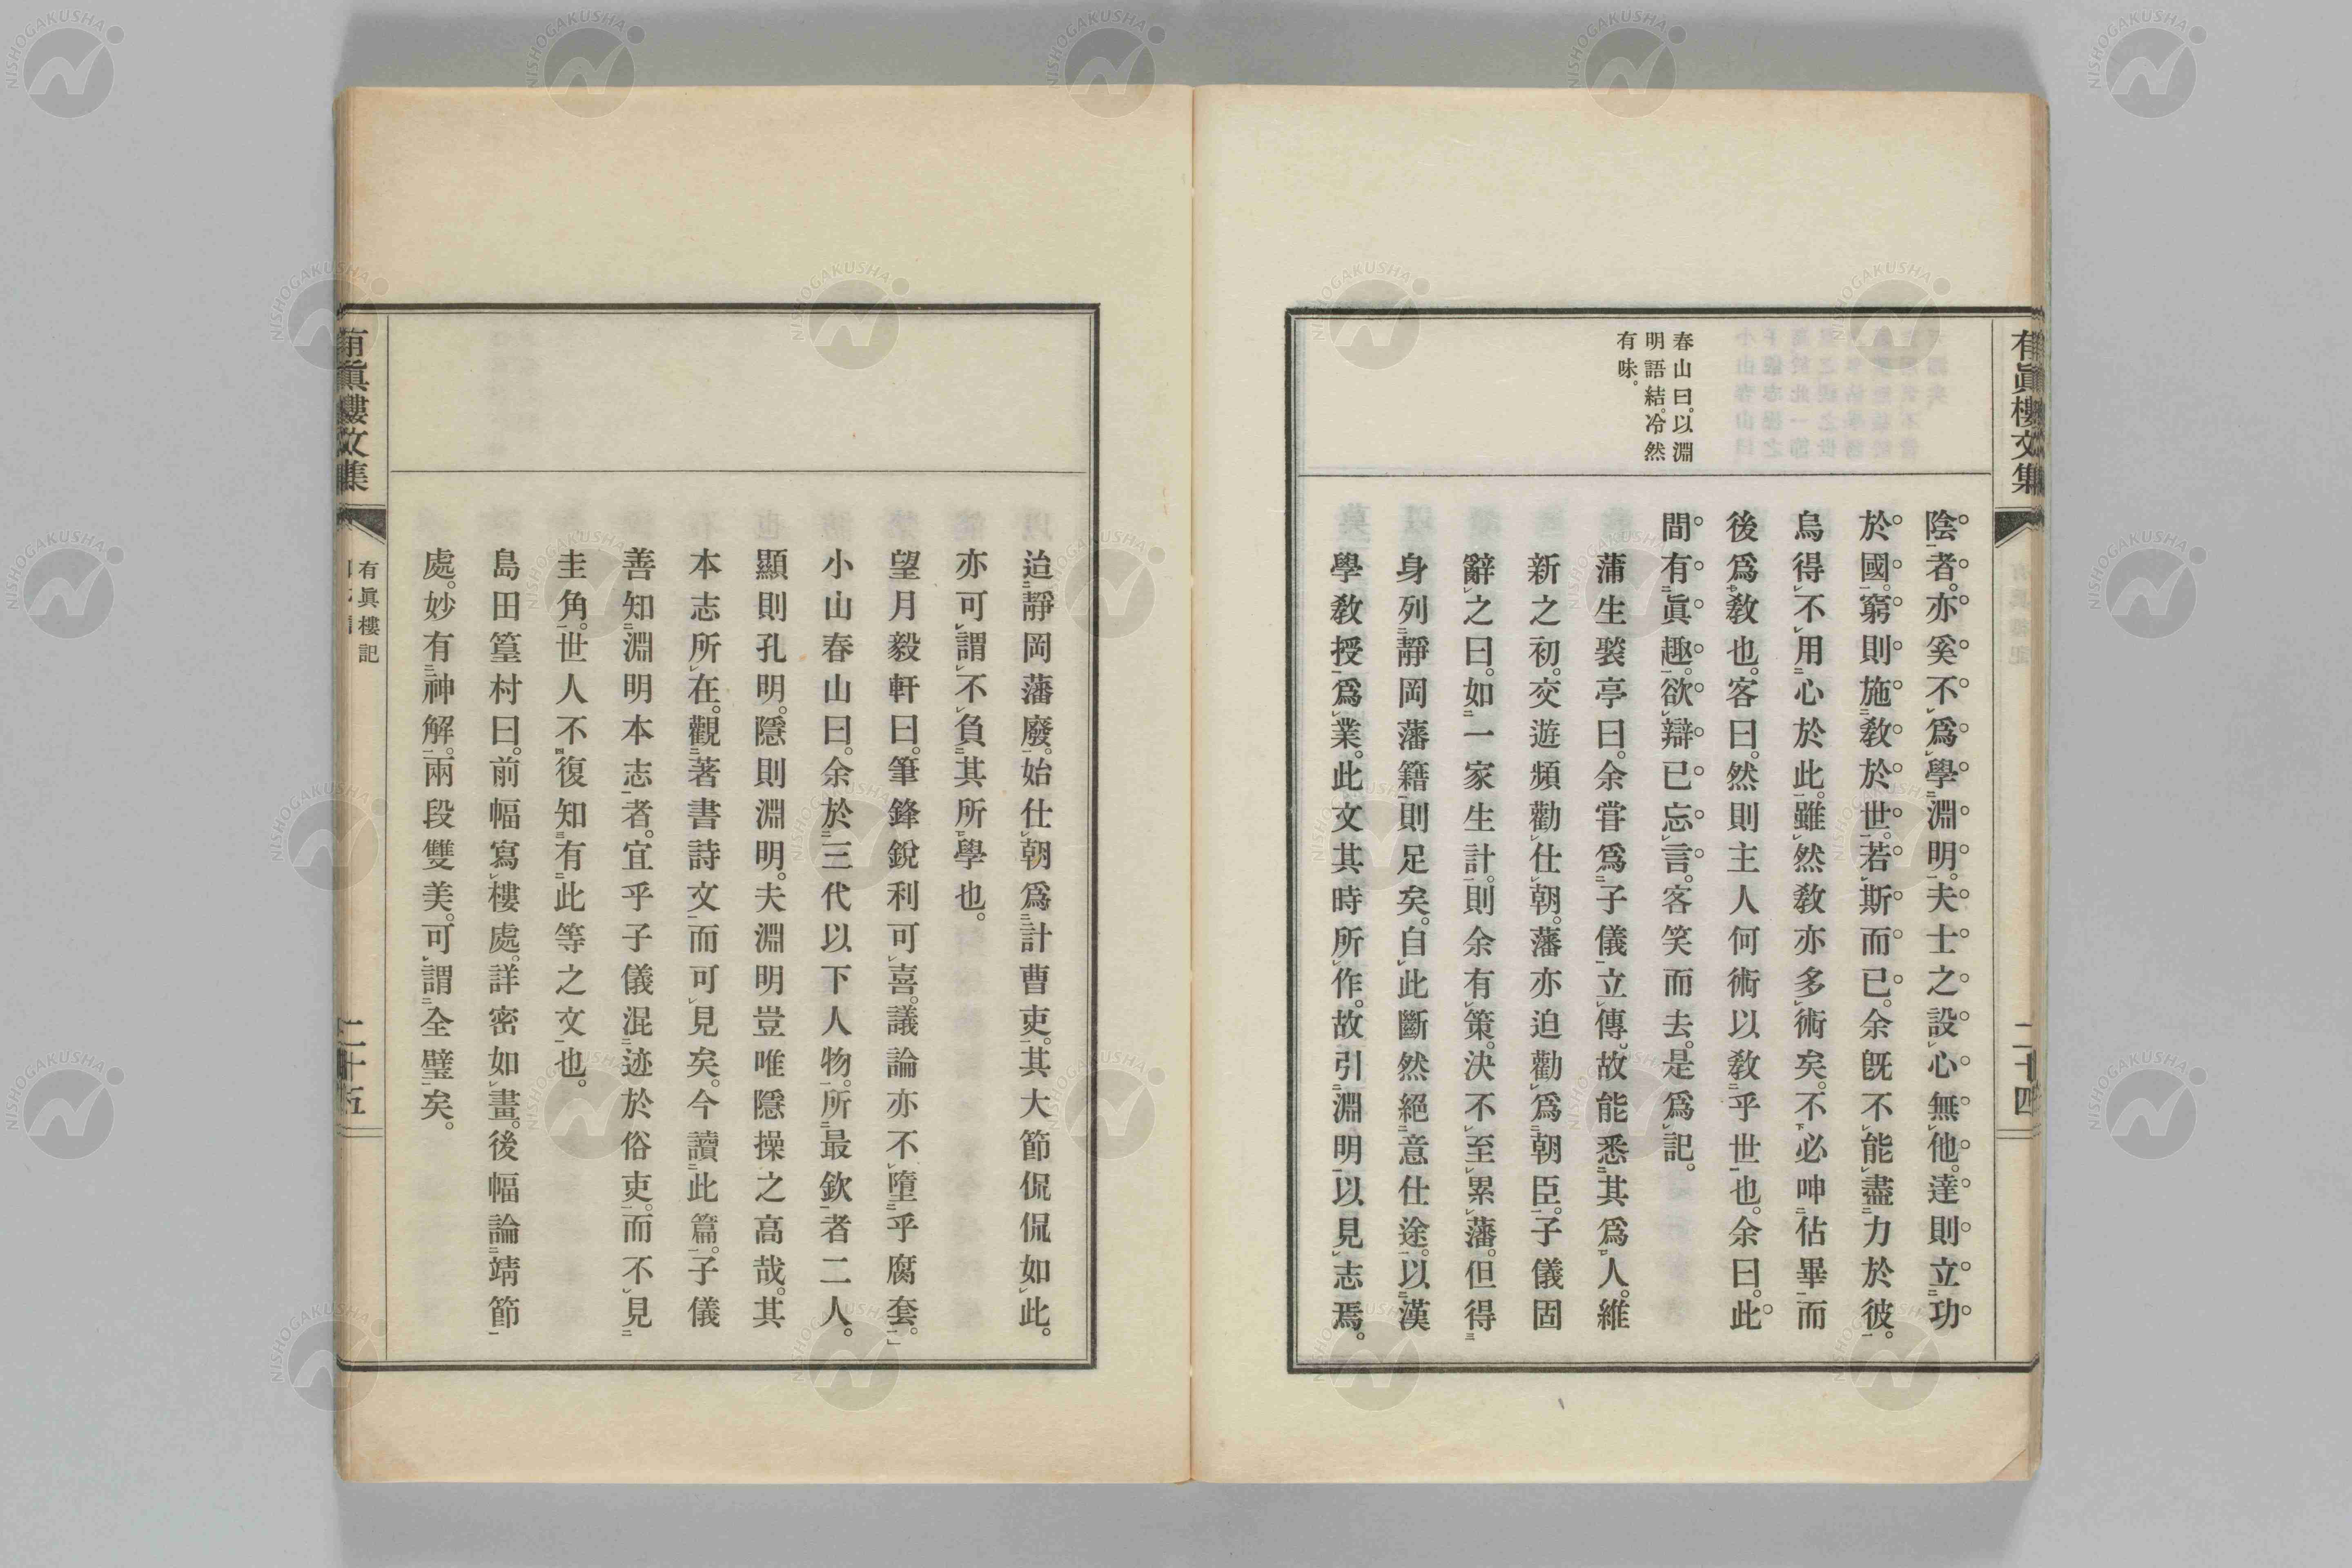 有眞樓文集
二十四
春山曰。以淵
明語結。冷然
有味。
陰者。亦奚不爲學淵明。夫士之設心無他。達則立功
於國。窮則施敎於世。若斯而已。余旣不能盡力於彼。
烏得不用心於此。雖然敎亦多術矣。不必呻佔畢而
後爲敎也。客曰。然則主人何術以敎乎世也。余曰。此
間有眞趣。欲辯已忘言。客笑而去。是爲記。
蒲生褧亭曰。余甞爲子儀立傳。故能悉其爲人。維
新之初。交遊頻勸仕朝。藩亦迫勸爲朝臣。子儀固
辭之曰。如一家生計。則余有策。決不至累藩。但得
身列靜岡藩籍則足矣。自此斷然絕意仕途。以漢
學敎授爲業。此文其時所作。故引淵明以見志焉。
迨靜岡藩廢。始仕朝爲計曹吏。其大節侃侃如此。
亦可謂不負其所學也。
望月毅軒曰。筆鋒銳利可喜。議論亦不墮乎腐套。
小山春山曰。余於三代以下人物。所最欽者二人。
顯則孔明。隱則淵明。夫淵明豈唯隱操之高哉。其
本志所在。觀著書詩文而可見矣。今讀此篇。子儀
善知淵明本志者。宜乎子儀混迹於俗吏。而不見
圭角。世人不復知有此等之文也。
島田篁村曰。前幅寫樓處。詳密如畫。後幅論靖節
處。妙有神解。兩段雙美。可謂全璧矣。
有眞樓文集
有眞樓記
二十五